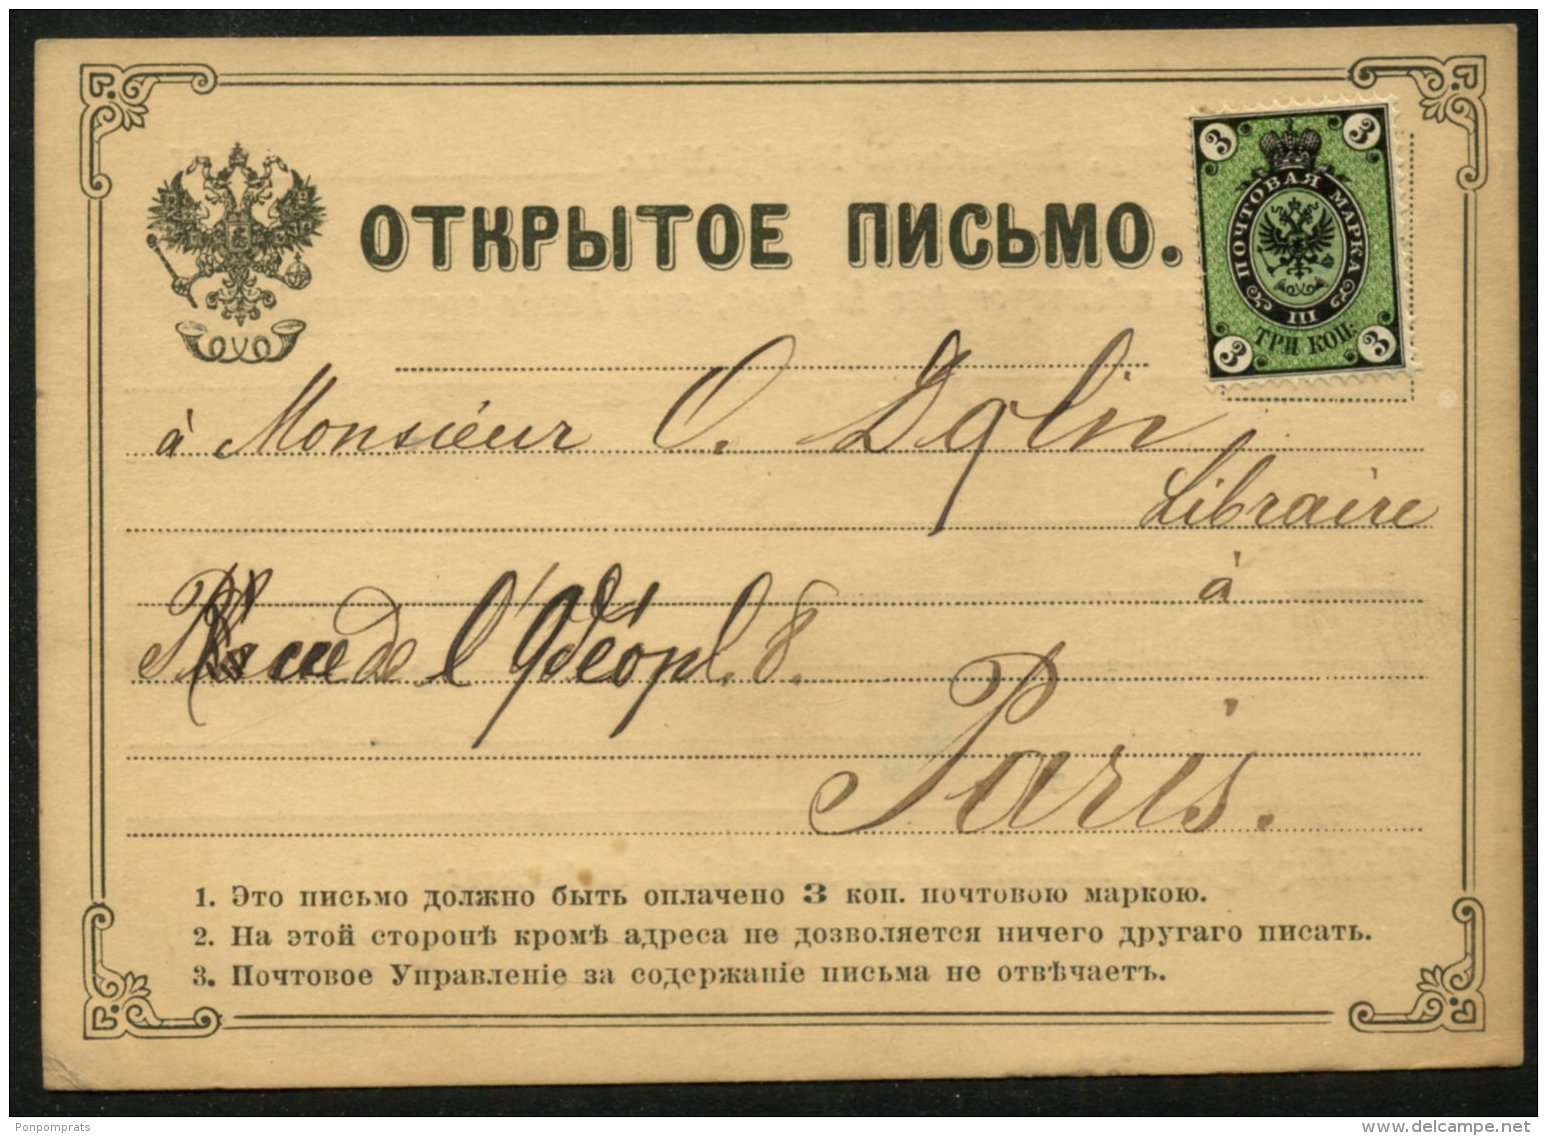 ОТКРЫТОЕ ПИСЬМО.
3 3
ПОЧТОВАЯ МАРКА
III
ТРИ КОП.
3 3
à Monsieur O.
Libraire
à
Place de l'Odéon 8.
Paris.
1. Это письмо должно быть оплачено 3 коп. почтовою маркою.
2. На этой сторонѣ кромѣ адреса не дозволяется ничего другаго писать.
3. Почтовое Управленіе за содержаніе письма не отвѣчаетъ.
Ponpomprats
www.delcampe.net